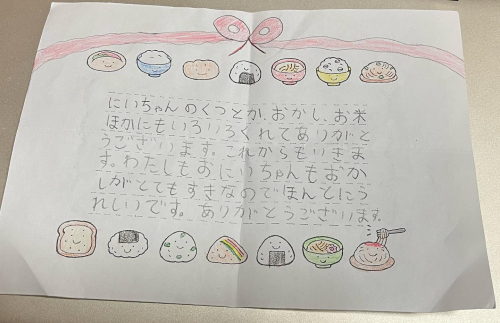 にいちゃんのくつとか、おかし、お米
ほかにもいろいろくれてありがと
うございます。これからもいきま
す。わたしもおにいちゃんもおか
しがとてもすきなのでほんとにう
れしいです。ありがとうございます。